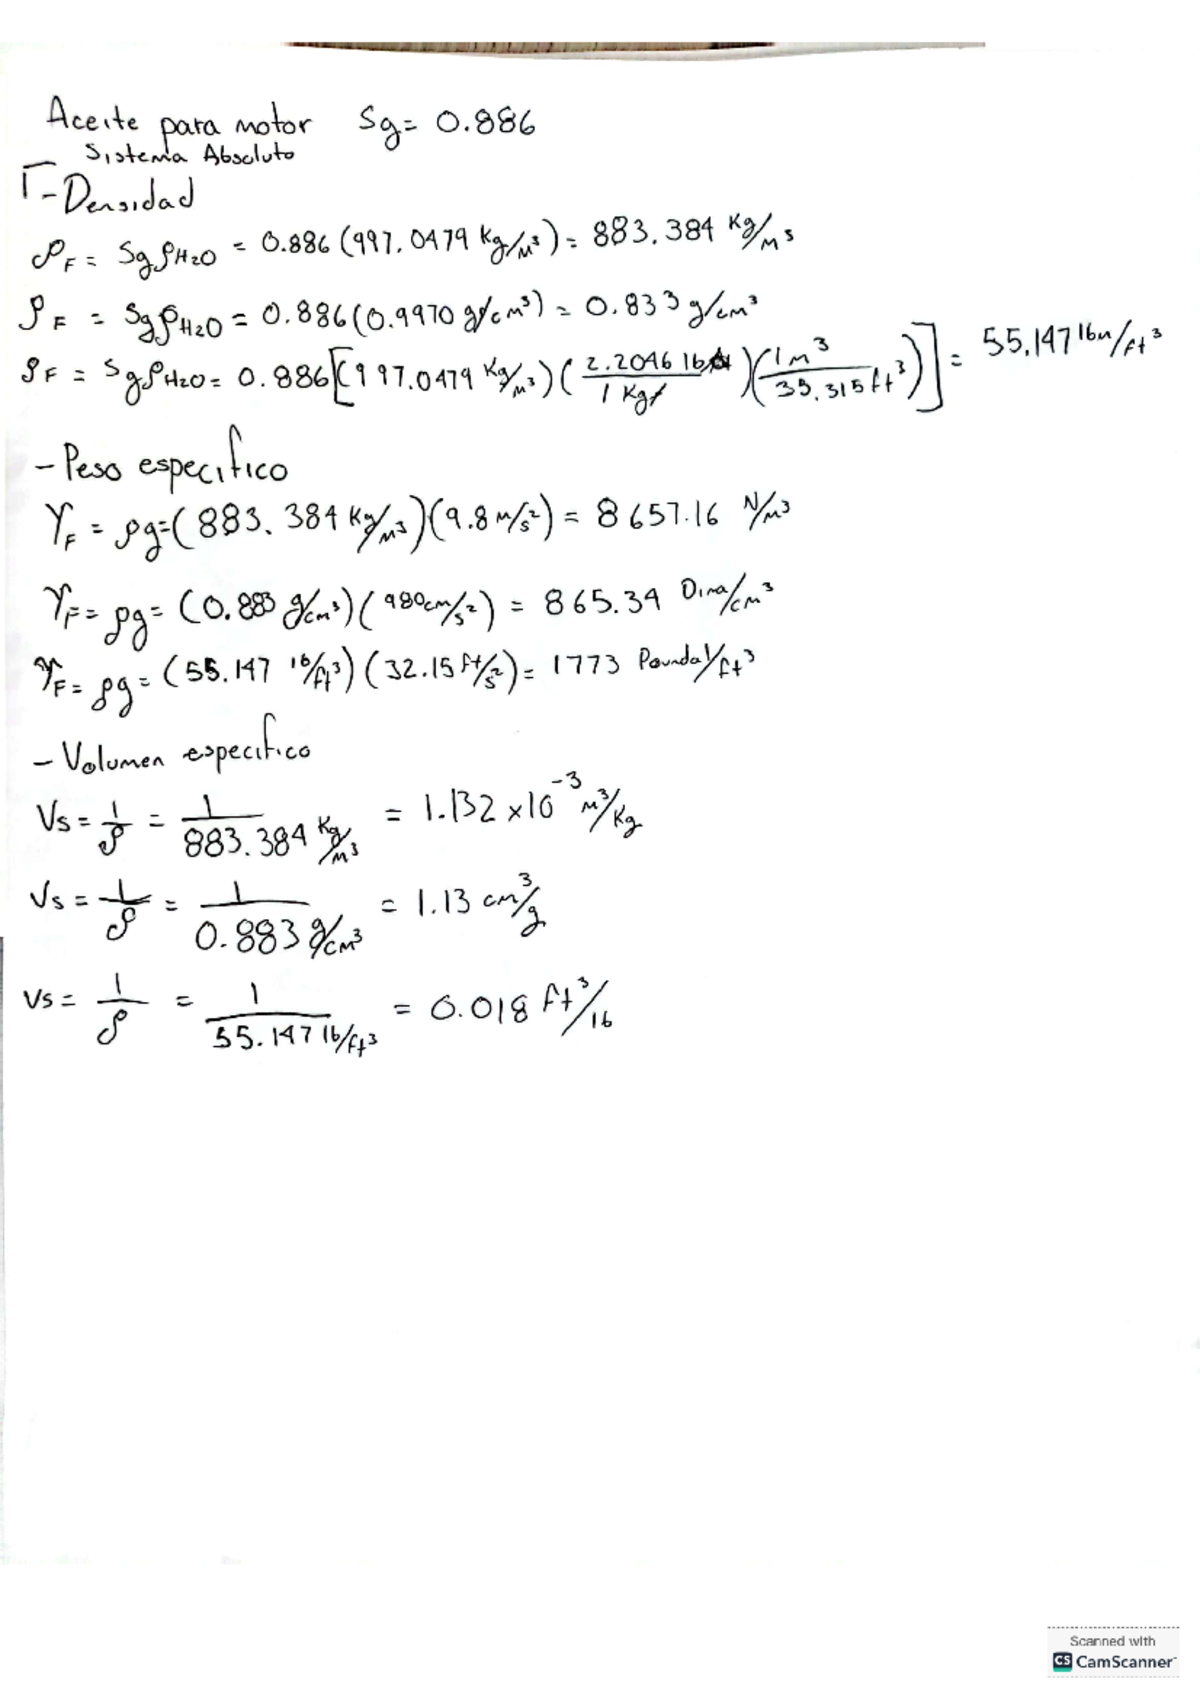 Aceite para motor Sg= 0.886
Sistema Absoluto
I-Densidad
ρF = SgρH2O = 0.886 (997.0479 Kg/m³) = 883.384 Kg/m³
ρF = SgρH2O = 0.886(0.9970 g/cm³) = 0.833 g/cm³
ρF = SgρH2O = 0.886[(997.0479 Kg/m³)(2.2046 lb/1 Kg)(1m³/35.315ft³)] = 55.147 lbm/ft³
- Peso especifico
γF = ρg=(883.384 Kg/m³)(9.8 m/s²) = 8657.16 N/m³
γF = ρg= (0.883 g/cm³)(980cm/s²) = 865.34 Dina/cm³
γF = ρg= (55.147 lb/ft³)(32.15 ft/s²)= 1773 Poundal/ft³
- Volumen especifico
Vs = 1/ρ = 1/883.384 Kg/m³ = 1.132 x10⁻³ m³/Kg
Vs = 1/ρ = 1/0.883 g/cm³ = 1.13 cm³/g
Vs = 1/ρ = 1/55.147 lb/ft³ = 0.018 ft³/lb
Scanned with
CS CamScanner